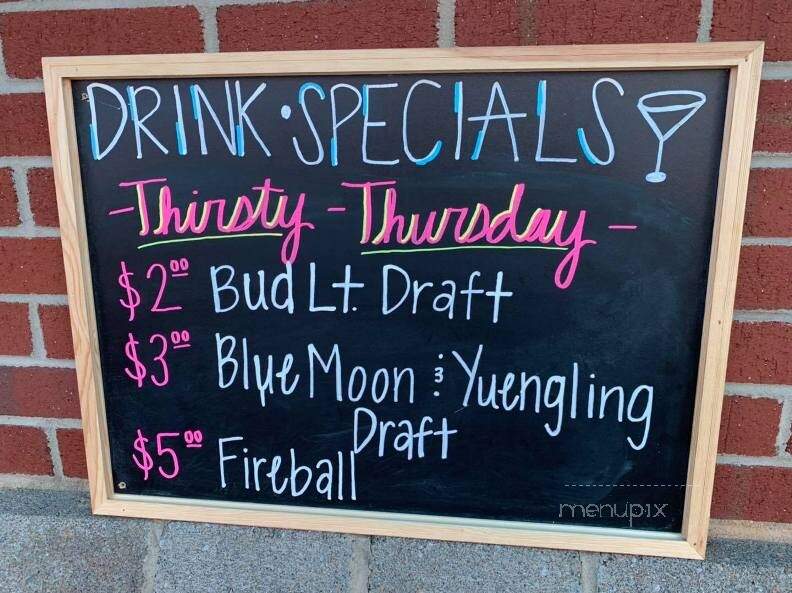 DRINK • SPECIALS
- Thirsty - Thursday -
$2.00 Bud Lt. Draft
$3.00 Blue Moon & Yuengling
Draft
$5.00 Fireball
menupix